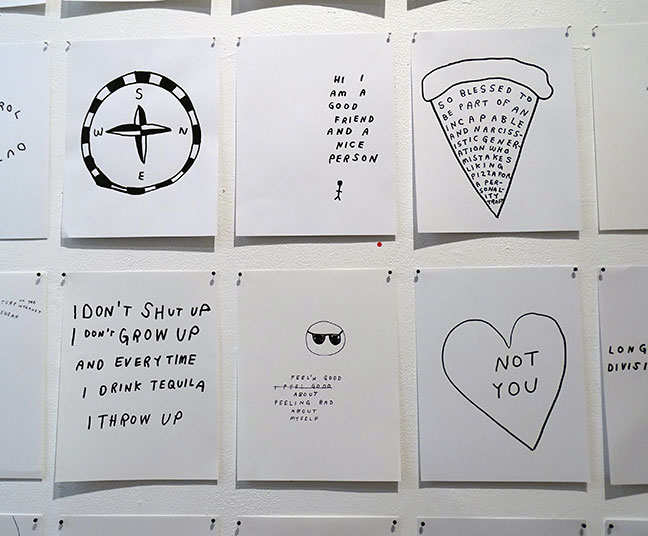 S
W
N
E
HI I
AM A
GOOD
FRIEND
AND A
NICE
PERSON
SO BLESSED TO
BE PART OF AN
INCAPABLE
AND NARCISS-
ISTIC GENER-
ATION WHO
MISTAKES
LIKING
PIZZA FOR
A PER-
SONAL-
ITY
TRAIT
I DON'T SHUT UP
I DON'T GROW UP
AND EVERYTIME
I DRINK TEQUILA
I THROW UP
FEEL'N GOOD
I FEEL GOOD
ABOUT
FEELING BAD
ABOUT
MYSELF
NOT
YOU
LONG
DIVISI